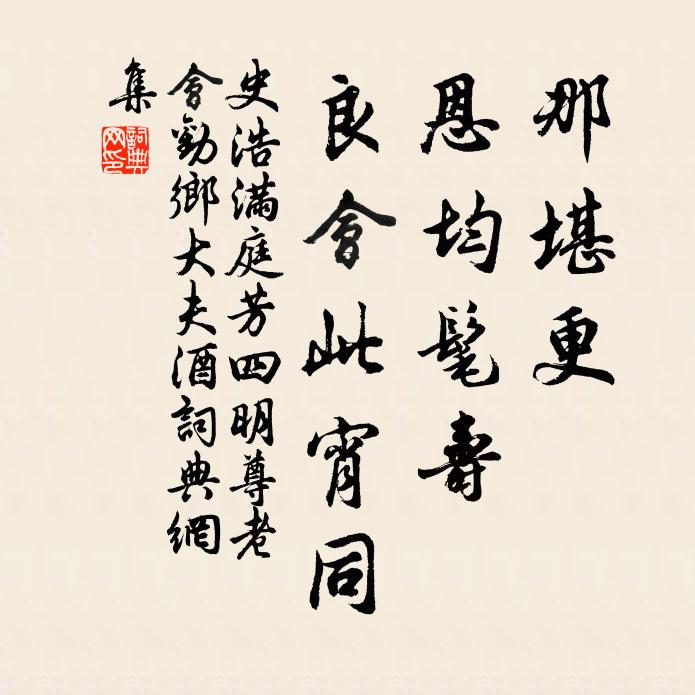 那堪更
恩均髦壽
良會此宵同
史浩滿庭芳四明尊老
會勸鄉大夫酒詞典網
集
詞典
网印